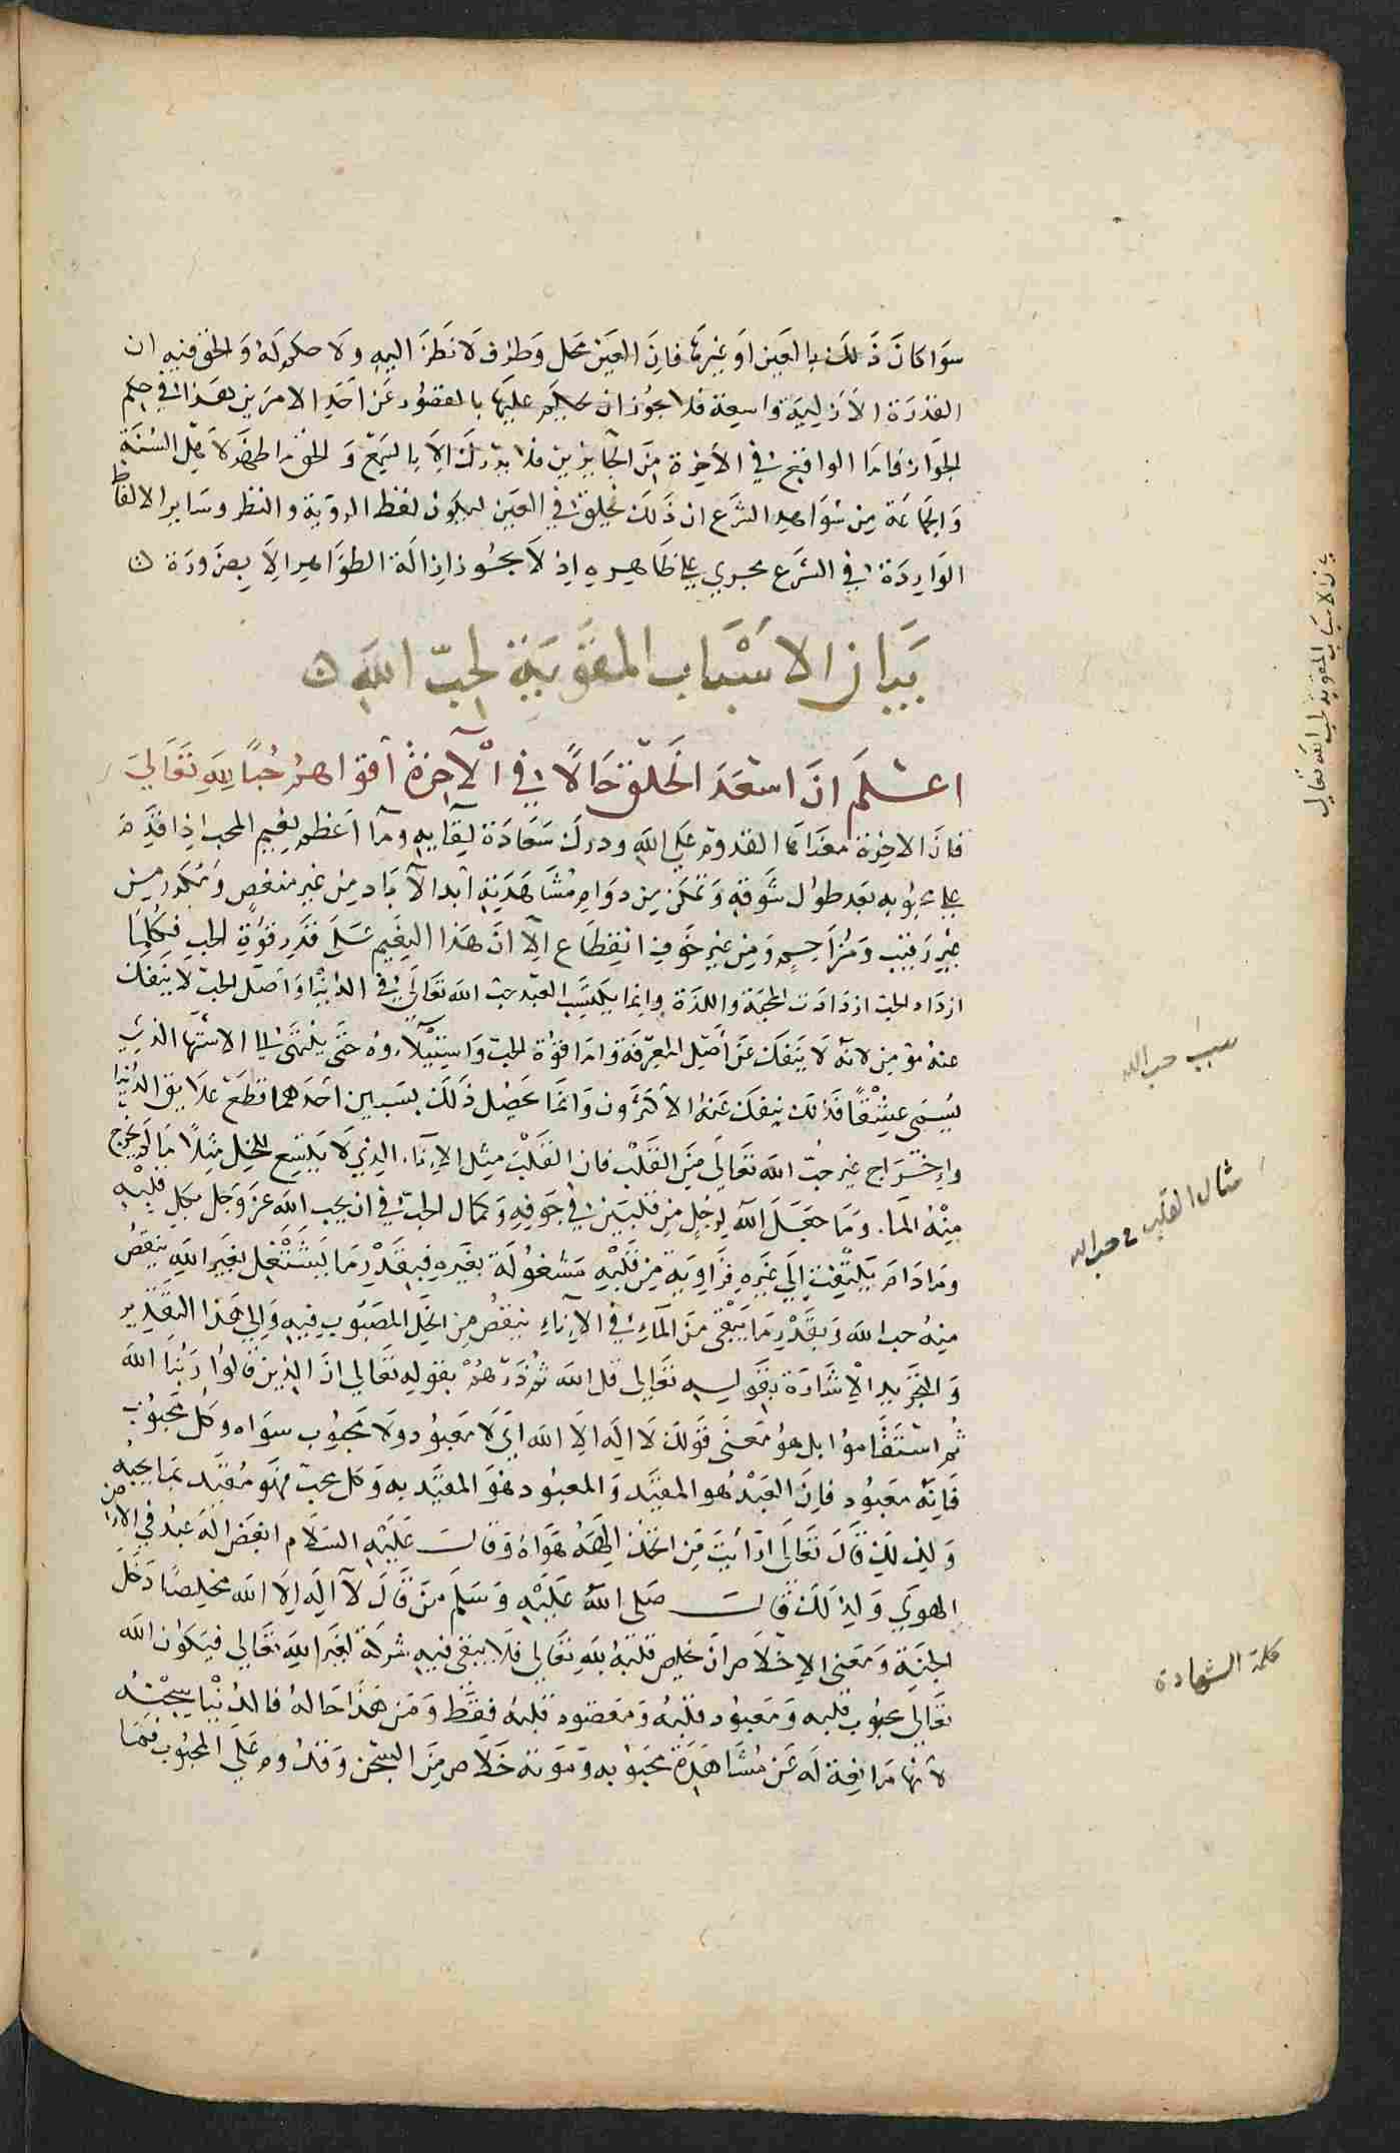 سوا كان ذلك بالعين او غيرها فان العين محل وظرف لا نظر اليه ولا حكم له والحق فيه ان
القدرة الازلية واسعة فلا يجوز ان نحكم عليها بالقصور عن احد الامرين هذا في حكم
الجواز فاما الواقع في الاخرة من الجايزين فلا يدرك الا بالسمع والحق ما ظهر لاهل السنة
والجماعة من شواهد الشرع ان ذلك يخلق في العين ليكون لفظ الروية والنظر وساير الالفاظ
الواردة في الشرع مجري علي ظاهره اذ لا يجوز ازالة الظواهر الا بضرورة ن
بيان الاسباب المقوية لحب الله ن
اعلم ان اسعد الخلق حالا في الآخرة أقواهم حبا لله تعالى
فان الاخرة معناها القدوم علي الله ودرك سعادة لقايه وما اعظم نعيم المحب اذا قدم
علي محبوبه بعد طول شوقه وتمكن من دوام مشاهدته ابد الآباد من غير منغص ومكدر من
غير رقيب ومزاحم ومن غير خوف انقطاع الا ان هذا النعيم على قدر قوة الحب فكلما
ازداد الحب ازدادت المحبة واللذة وانما يكتسب العبد حب الله تعالى في الدنيا واصل الحب لا ينفك
عنه مومن لانه لا ينفك عن أصل المعرفة واما قوة الحب واستيلاوه حتى ينتهى الى الاستهتار الذي
يسمى عشقا فذلك ينفك عنه الأكثرون وانما يحصل ذلك بسببين احدهما قطع علايق الدنيا
واخراج غير حب الله تعالى من القلب فان القلب مثل الاناء الذي لا يتسع للخل مثلا ما لم يخرج
منه الما. وما جعل الله لرجل من قلبين في جوفه وكمال الحب في ان يحب الله عز وجل بكل قلبه
وما دام يلتفت إلى غيره فزاوية من قلبه مشغولة بغيره فبقدر ما يشتغل بغير الله ينقص
منه حب الله وبقدر ما يبقى من الماء في الاناء ينقص من الخل المصبوب فيه والي هذا التفريد
والتجريد الاشارة بقوله تعالى قل الله ثم ذرهم بقوله تعالى ان الذين قالوا ربنا الله
ثم استقاموا بل هو معنى قولك لا اله الا الله اي لا معبود ولا محبوب سواه وكل محبوب
فانه معبود فان العبد هو المقيد والمعبود هو المقيد به وكل محب فهو مقيد بما يحبه
ولذلك قال تعالى ارأيت من اتخذ إلهه هواه وقال عليه السلام ابغض اله عبد في الارض
الهوي ولذلك قال صلى الله عليه وسلم من قال لا اله الا الله مخلصا دخل
الجنة ومعنى الاخلاص ان يخلص قلبه لله تعالى فلا يبقى فيه شركة لغير الله تعالي فيكون الله
تعالى محبوب قلبه ومعبود قلبه ومقصود قلبه فقط ومن هذا حاله فالدنيا سجنه
لانها مانعة له عن مشاهدة محبوبه وموته خلاص من السجن وقدوم علي المحبوب فما
بيان الاسباب المقوية لحب الله تعالى
سبب حب الله
مثال القلب في حب الله
كلمة الشهادة